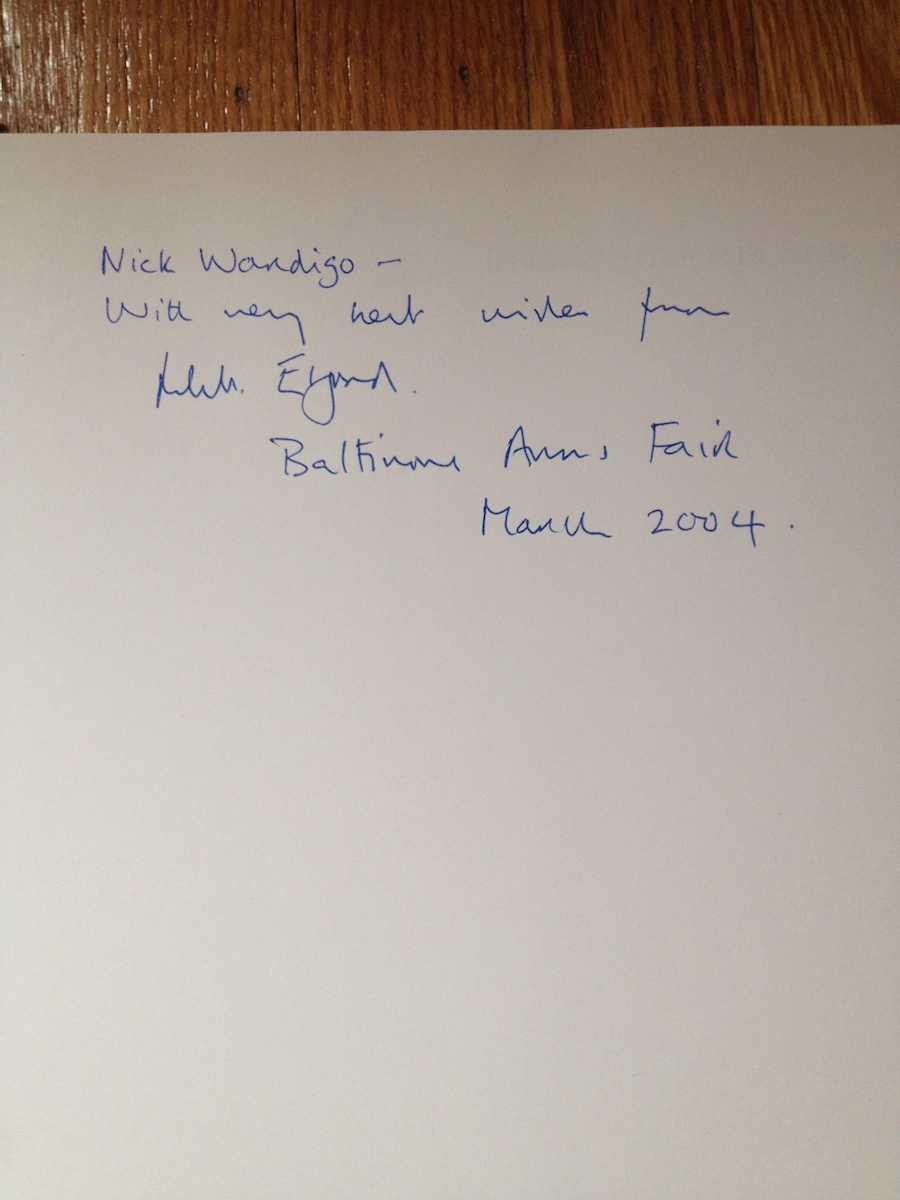 Nick Wandigo –
With very best wishes from
Robert Elgood.
Baltimore Arms Fair
March 2004.